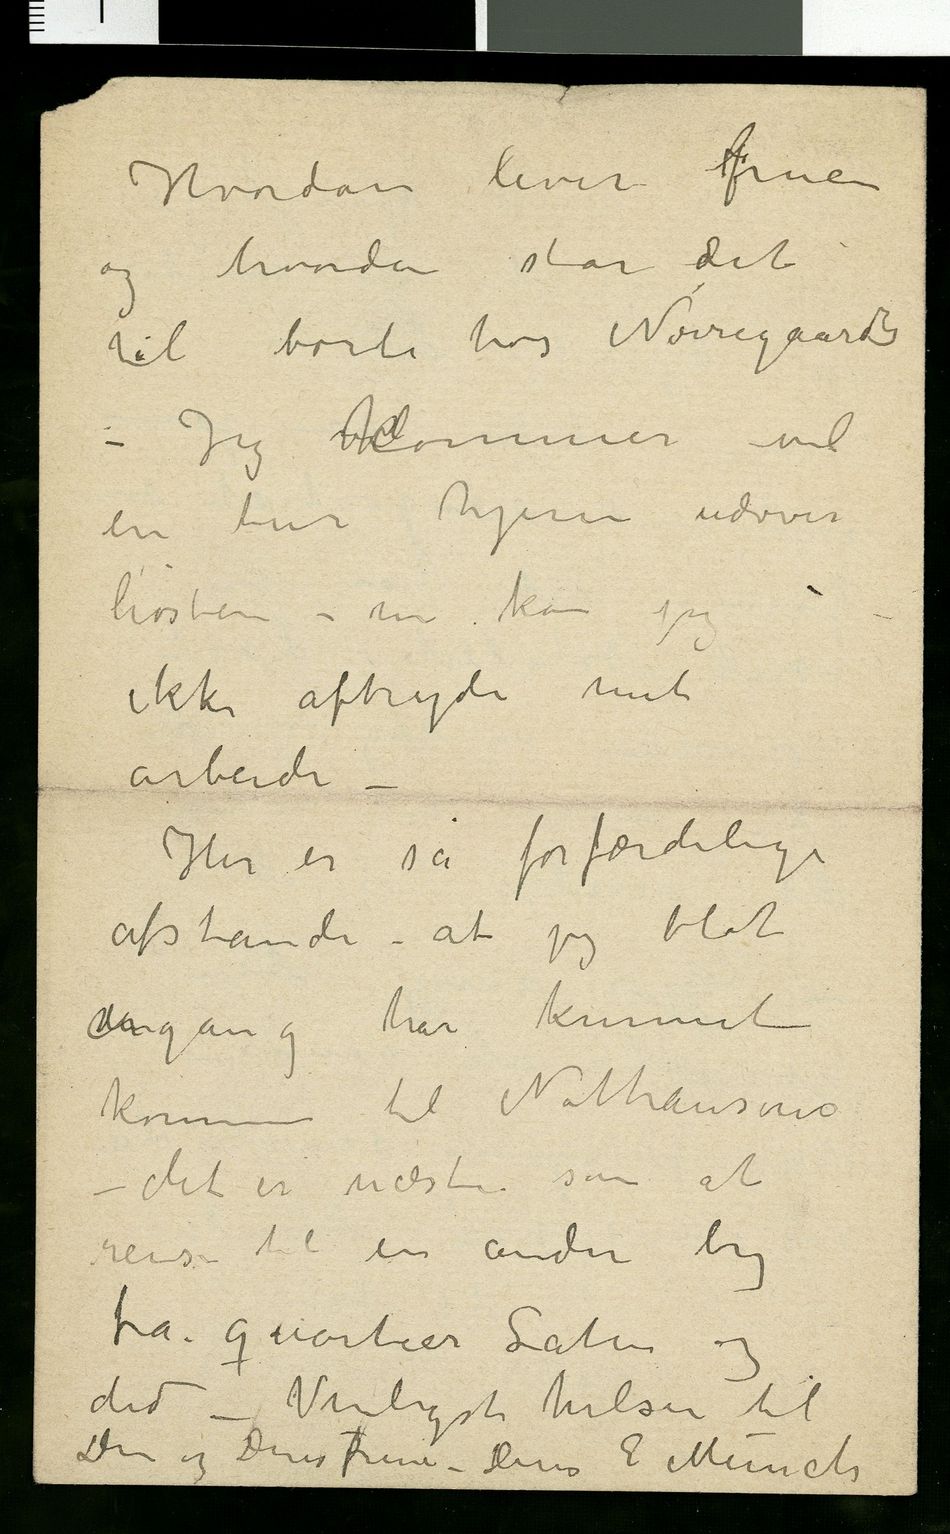 Hvordan lever fruen
og hvordan står det
til borte hos Nørregaards
– Jeg kommer vel
en tur hjem udover
høsten – nu kan jeg
ikke afbryde mit
arbeide –
Her er så forfærdelige
afstande – at jeg blot
engang har kunnet
komme til Nathansons
– det er næsten som at
reise til en anden by
fra quartier Latin og
did – Venligst hilsen til
Dem og Deres frue – Deres E Munch